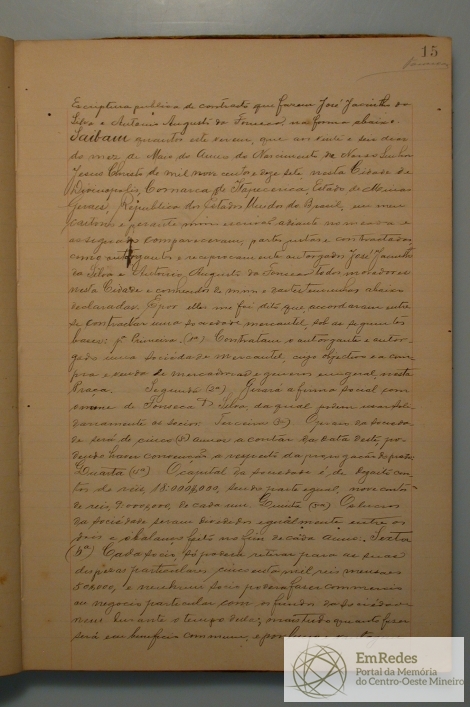 15
Escriptura publica de contracto que fazem José Jacintho da
Silva e Antonio Augusto da Fonseca, na forma abaixo
Saibam quantos este virem, que aos vinte e seis dias
do mez de Maio do Anno do Nascimento de Nosso Senhor
Jesus Christo de mil nove centos e dezesete, nesta Cidade de
Divinopolis, Comarca de Itapecerica, Estado de Minas
Geraes, Republica dos Estados Unidos do Brasil, em meu
Cartorio e perante mim escrivão adiante nomeado e
assignado compareceram, partes entre si contractadas
como outorgantes e reciprocamente outorgados José Jacintho
da Silva e Augusto da Fonseca todos moradores
nesta Cidade e conhecidos de mim e das testemunhas abaixo
declaradas. E por elles me foi dito que accordaram entre
si contractar uma sociedade mercantil, sob as seguintes
bases: Primeira (1ª) Contratam o outorgante e outor-
gado uma Sociedade mercantil, cujo objectivo é a com-
pra e venda de mercadorias e generos em geral, nesta
Praça. Segunda (2ª) Girará a firma social com o
nome de Fonseca & Silva, da qual podem usar soli-
dariamente os socios. Terceira (3ª) O praso da socieda-
de será de cinco (5) annos a contar da data deste, po-
dendo haver convenção a respeito da prorogação do praso
Quarta (4ª) O capital da sociedade é de dezoito con-
tos de réis, 18:000$000, sendo parte egual, nove contos
de reis, 9:000$000, de cada um. Quinta (5ª) Os lucros
da sociedade seram divididos egualmente entre os
socios e o balanço feito no fim de cada anno. Sexta
(6ª) Cada socio, só poderá retirar para as suas
despezas particulares cincoenta mil réis mensaes
50$000, e nenhum socio poderá fazer commercio
ou negocio particular com os fundos da sociedade
durante o tempo desta; quanto fizer
será em beneficio commum, e
EmRedes
Portal da Memória
do Centro-Oeste Mineiro